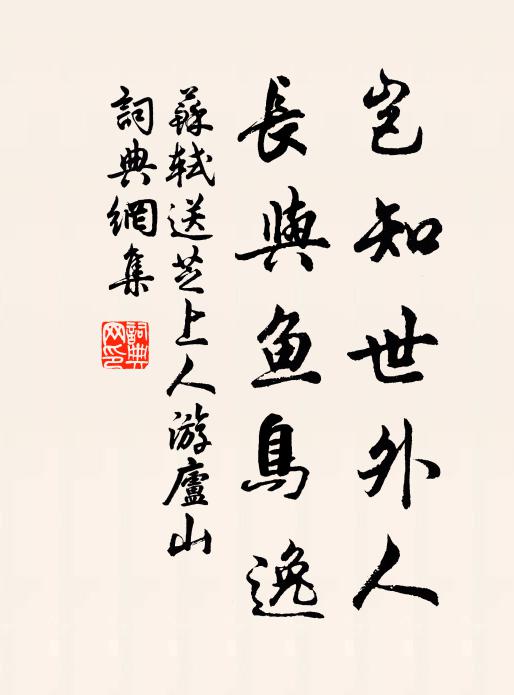 豈知世外人
長與魚鳥逸
蘇軾送芝上人游廬山
詞典網集
詞典網印